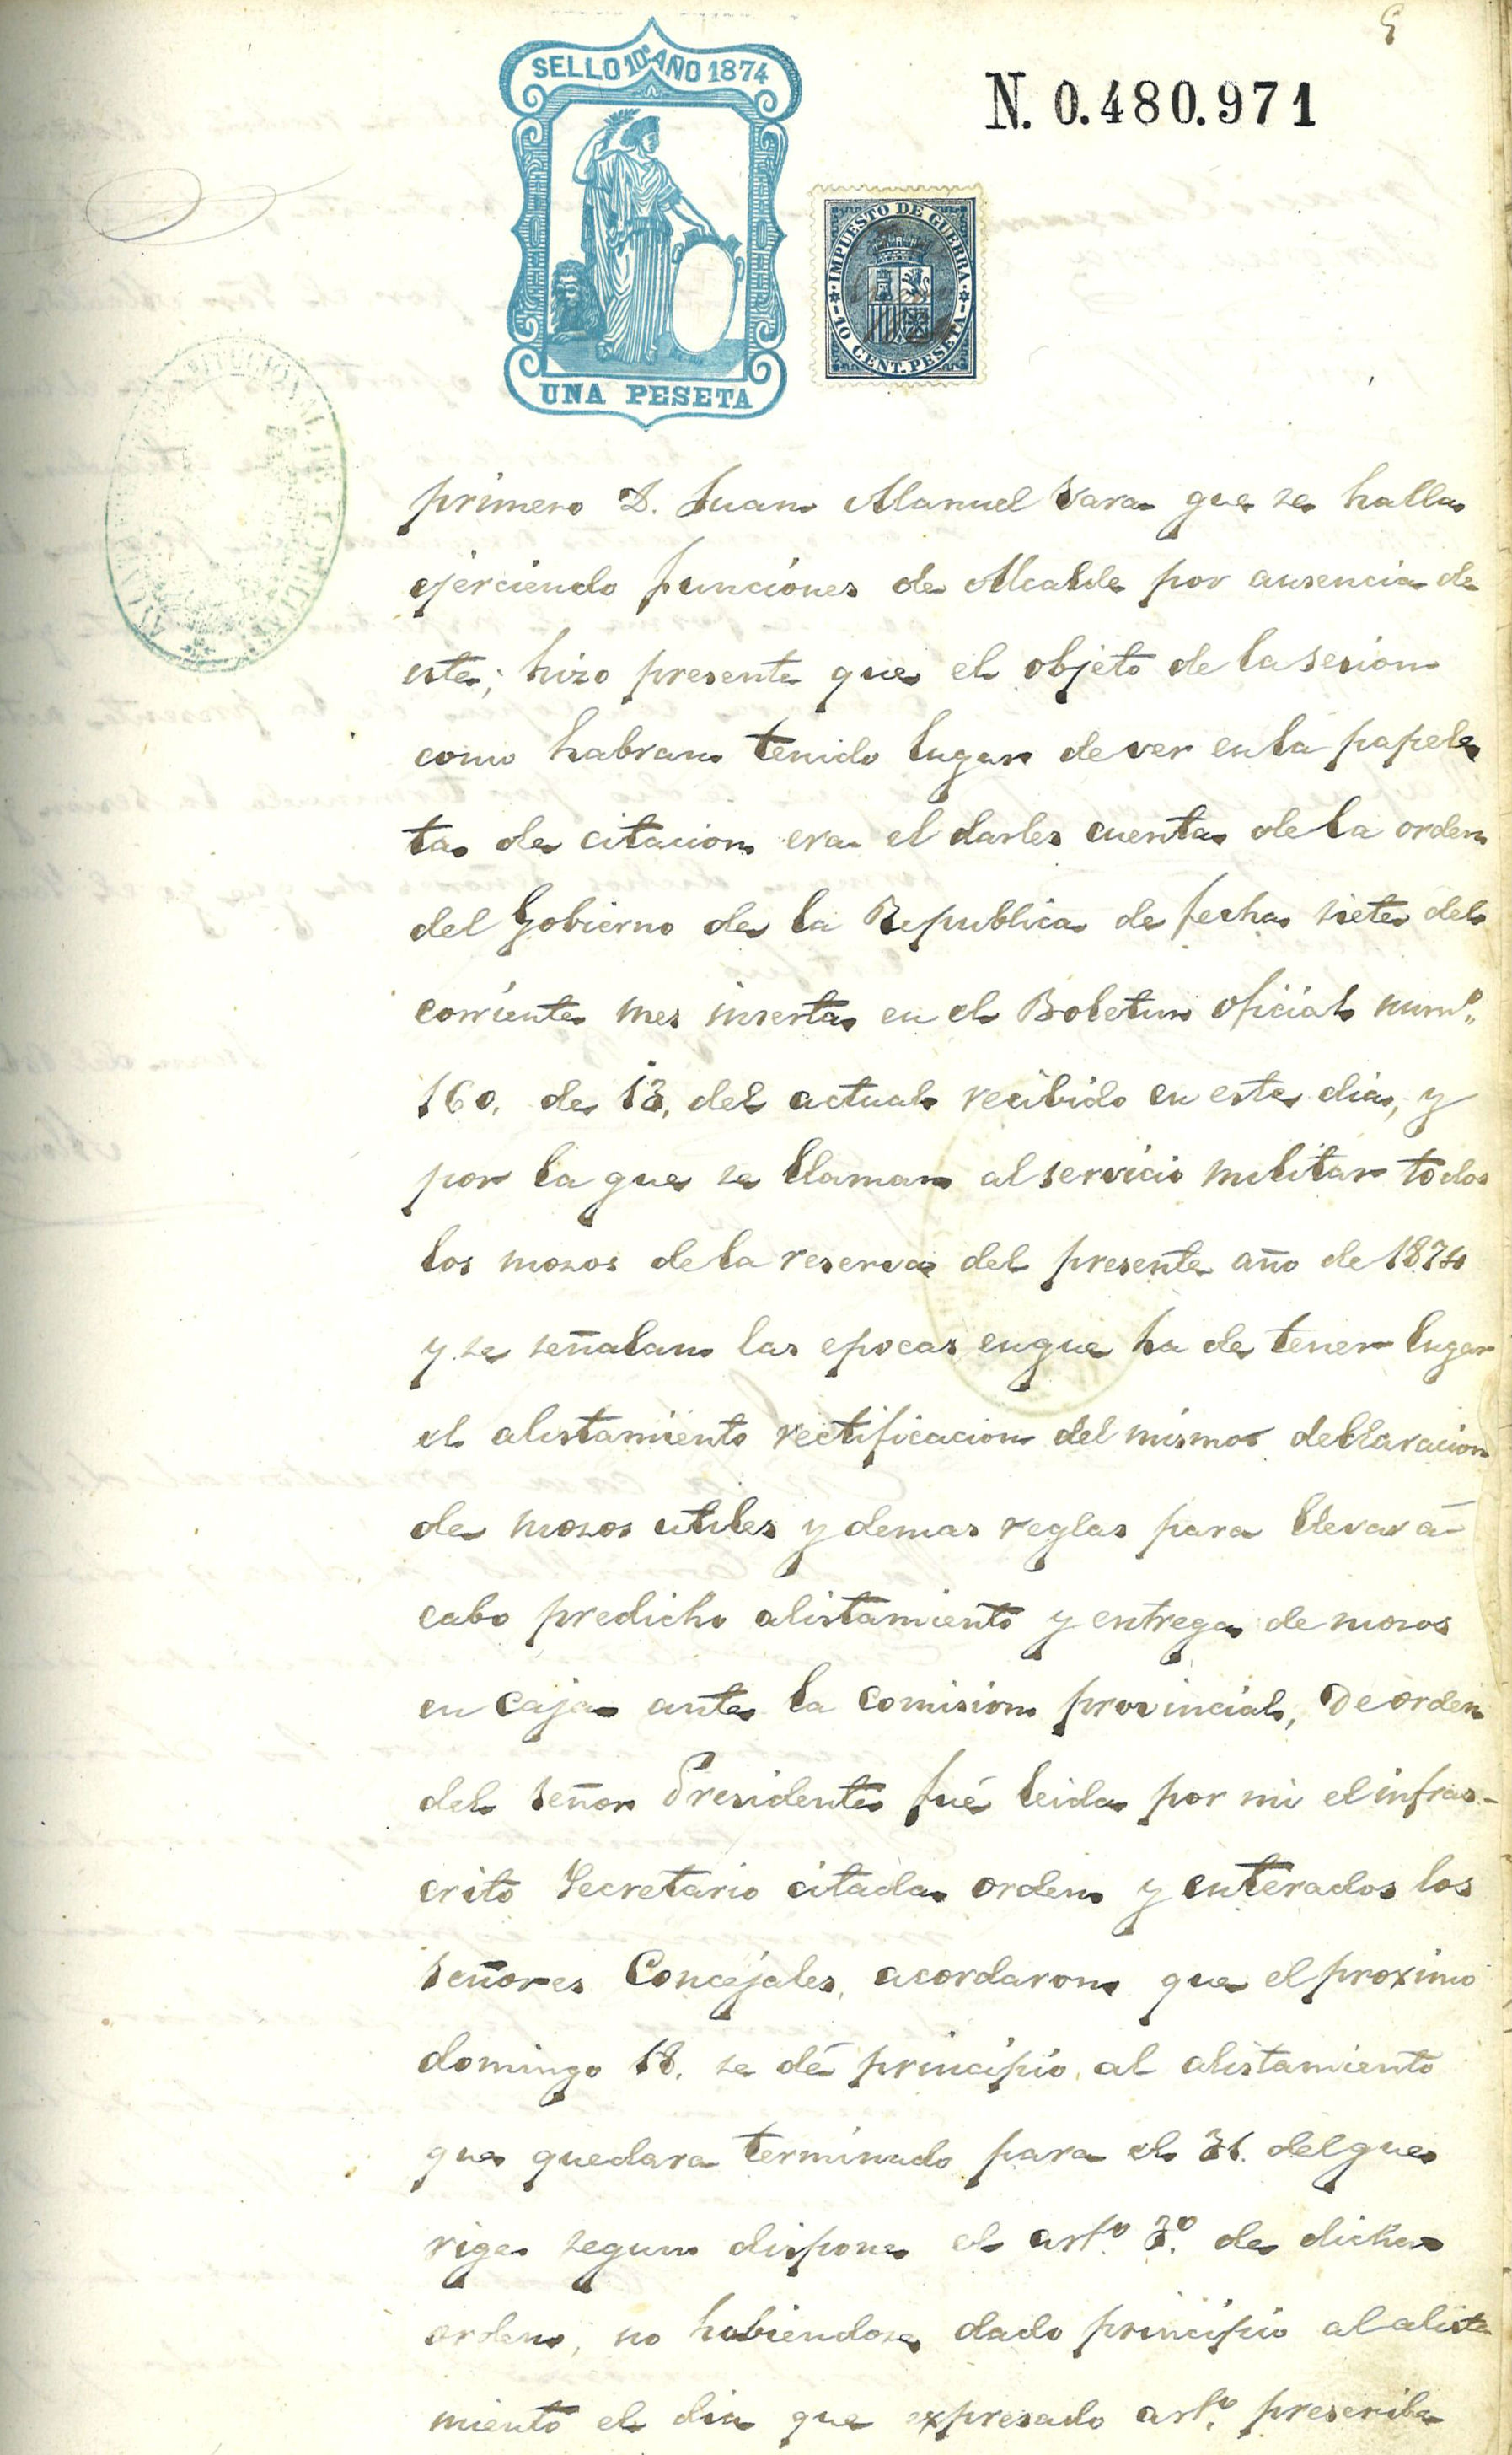 SELLO 10º AÑO 1874
N. 0.480.971
IMPUESTO DE GUERRA
10 CENT. PESETA
UNA PESETA
primero D. Juan Manuel Vara que se halla
ejerciendo funciones de Alcalde por ausencia de
este; hizo presente que el objeto de la sesion
como habran tenido lugar de ver en la papele
ta de citacion era el darles cuenta de la orden
del Gobierno de la Republica de fecha siete del
corriente mes inserta en el Boletin oficial num.º
160. de 13. del actual recibido en este dia, y
por la que se llaman al servicio militar todos
los mozos de la reserva del presente año de 1874
y se señalan las epocas en que ha de tener lugar
el alistamiento rectificacion del mismo declaracion
de mozos utiles y demas reglas para llevar á
cabo predicho alistamiento y entrega de mozos
en caja ante la comision provincial, De orden
del señor Presidente fué leida por mi el infras-
crito Secretario citada orden y enterados los
señores Concejales, acordaron que el proximo
domingo 18. se dé principio al alistamiento
que quedara terminado para el 31. del que
rige segun dispone el art.º 3.º de dicha
orden, no habiendose dado principio al alista
miento el dia que expresado art.º prescribe